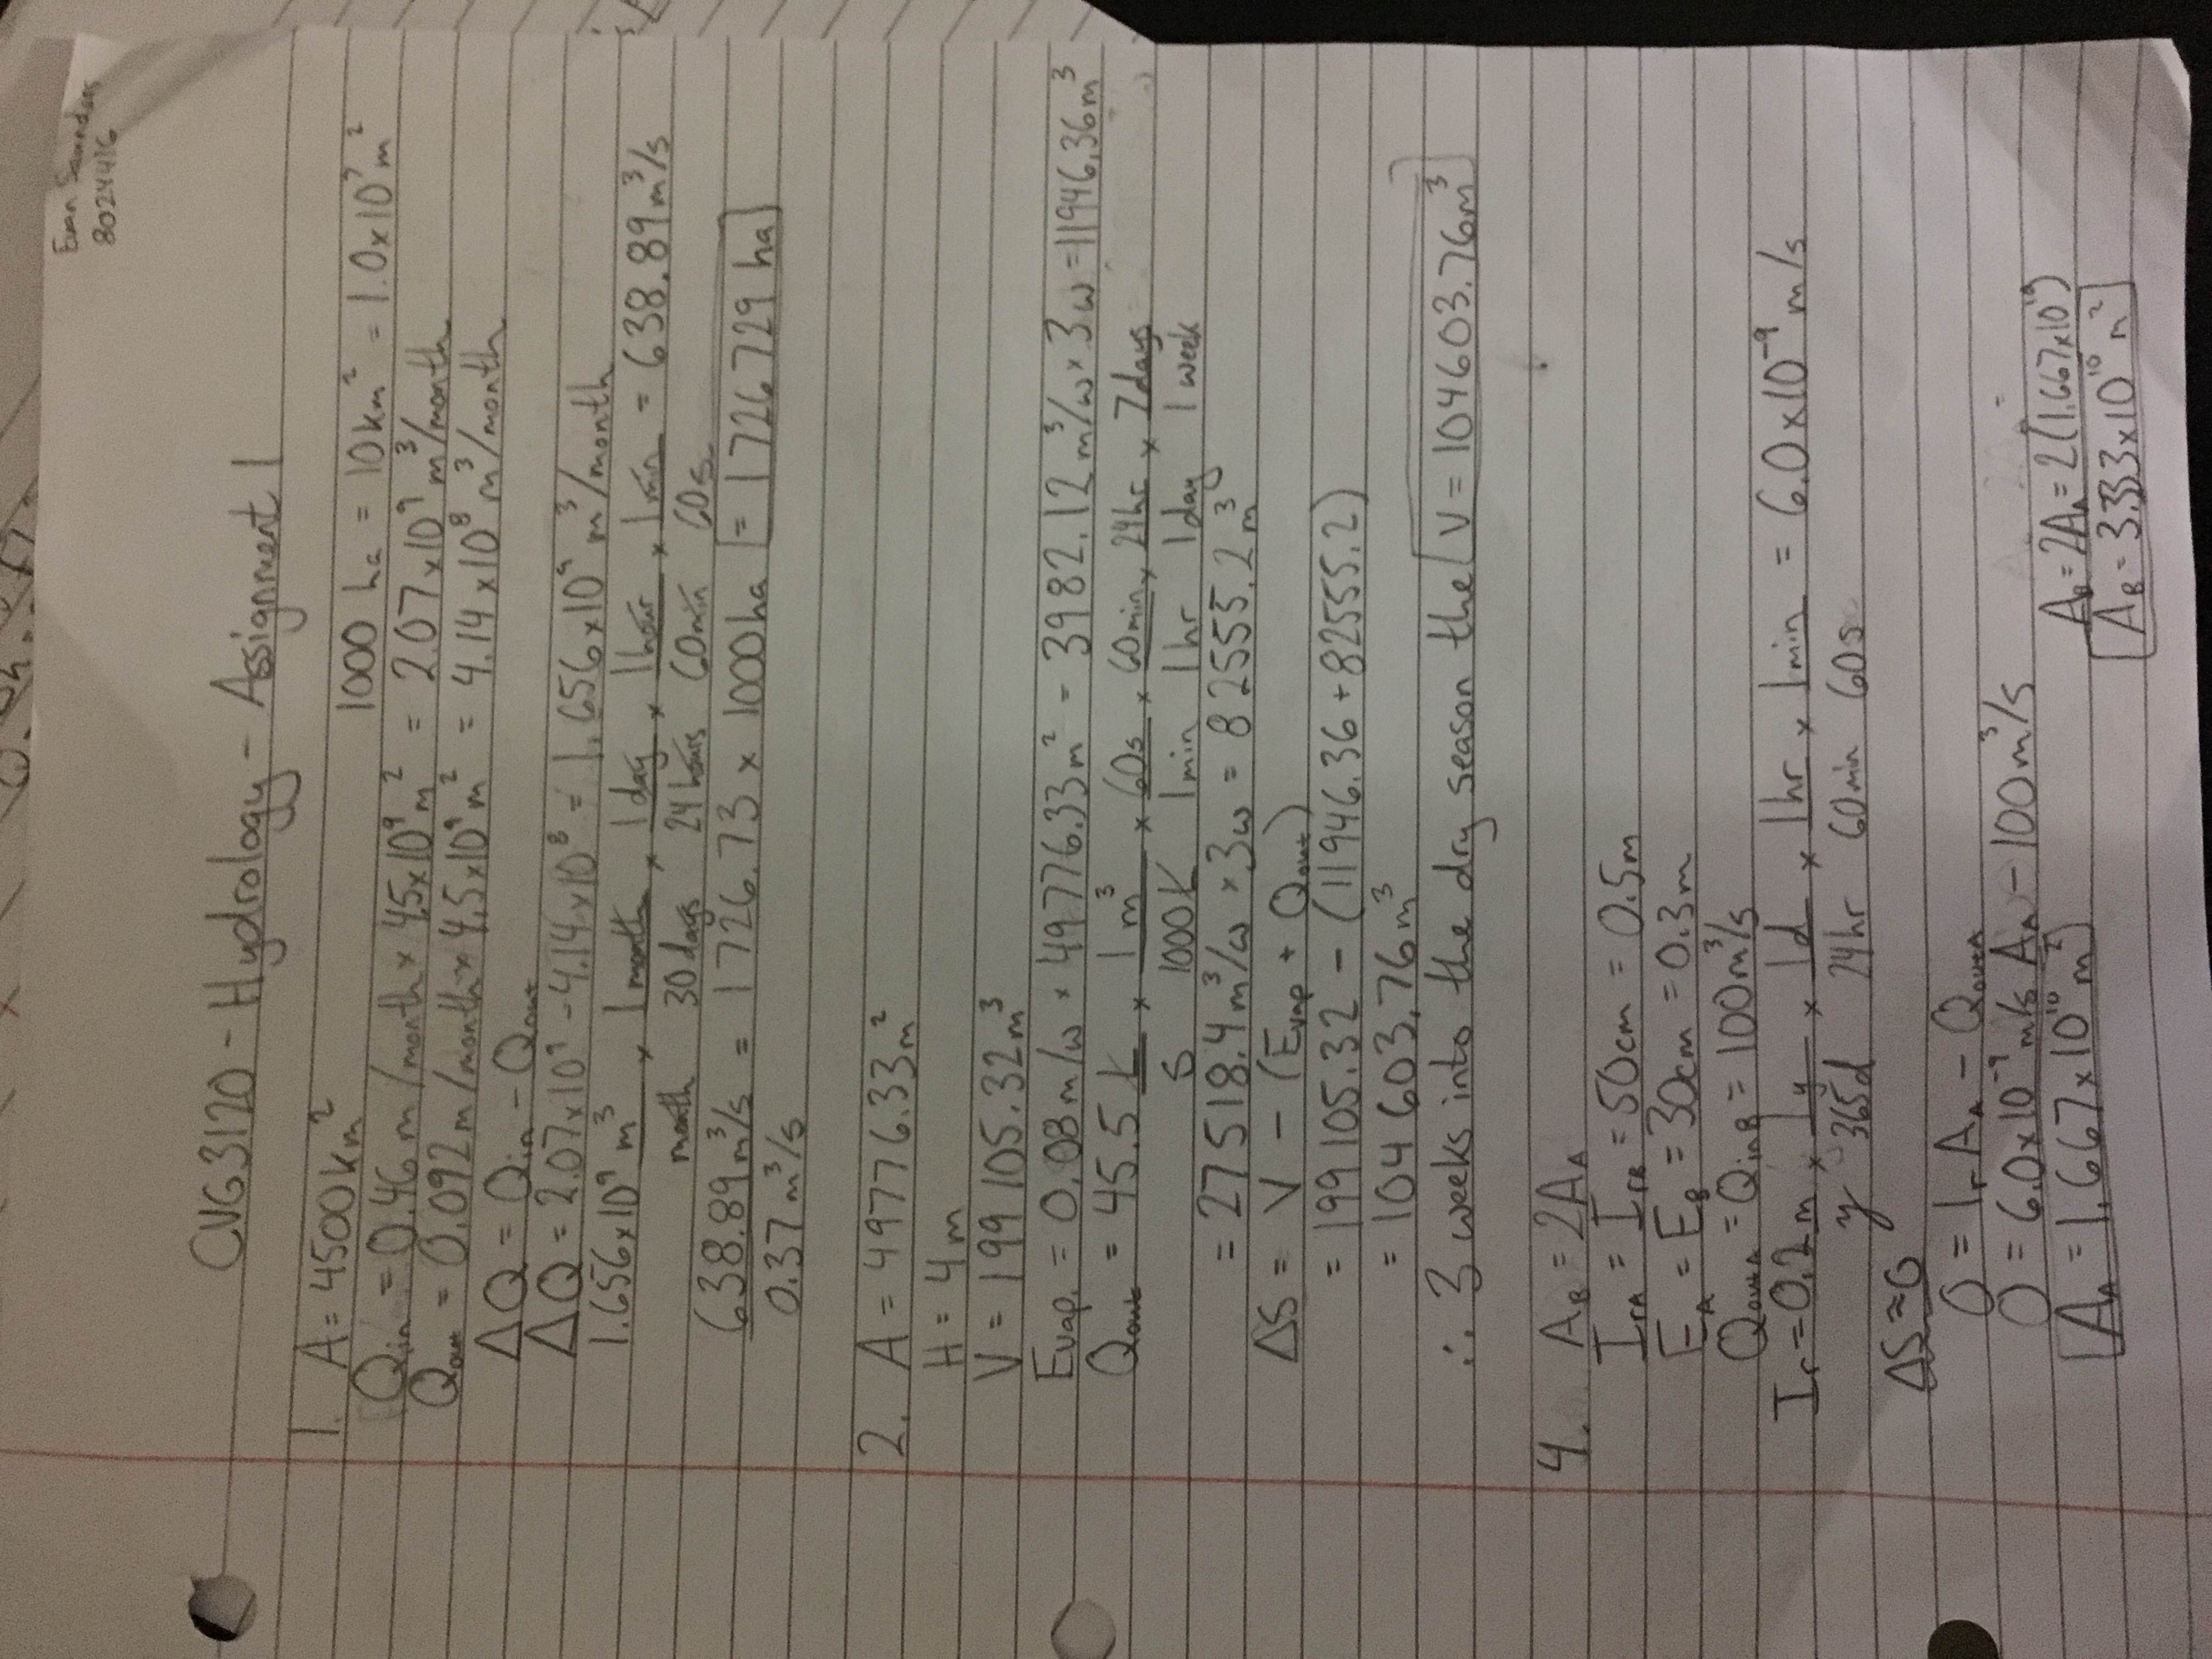 Evan Saundas
80244416
CVG3120 - Hydrology - Assignment 1
1. A = 4500km² 1000 ha = 10km² = 1.0x10⁷m²
Qin = 0.46 m/month x 4.5x10⁹m² = 2.07x10⁹ m³/month
Qout = 0.092 m/month x 4.5x10⁹m² = 4.14x10⁸ m³/month
ΔQ = Qin - Qout
ΔQ = 2.07x10⁹ - 4.14x10⁸ = 1.656x10⁹ m³/month
1.656x10⁹ m³/month x 1 month/30 days x 1 day/24 hours x 1 hour/60 min x 1 min/60s = 638.89 m³/s
638.89m³/s / 0.37m³/s = 1726.73 x 1000ha = 1726729 ha
2. A = 49776.33m²
H = 4m
V = 199105.32m³
Evap. = 0.08m/w x 49776.33m² = 3982.12m³/w x 3w = 11946.36m³
Qout = 45.5 L/s x 1m³/1000L x 60s/1min x 60min/1hr x 24hr/1day x 7days/1week
= 27518.4m³/w x 3w = 82555.2m³
ΔS = V - (Evap + Qout)
= 199105.32 - (11946.36 + 82555.2)
= 104603.76m³
∴ 3 weeks into the dry season the V = 104603.76m³
4. A_B = 2A_A
I_rA = I_rB = 50cm = 0.5m
E_A = E_B = 30cm = 0.3m
QoutA = QinB = 100m³/s
Ir = 0.2m/y x 1y/365d x 1d/24hr x 1hr/60min x 1min/60s = 6.0x10⁻⁹ m/s
ΔS≈0
0 = IrA_A - QoutA
0 = 6.0x10⁻⁹m/s A_A - 100m³/s
A_A = 1.667x10¹⁰m²
A_B = 2A_A = 2(1.667x10¹⁰)
A_B = 3.333x10¹⁰m²